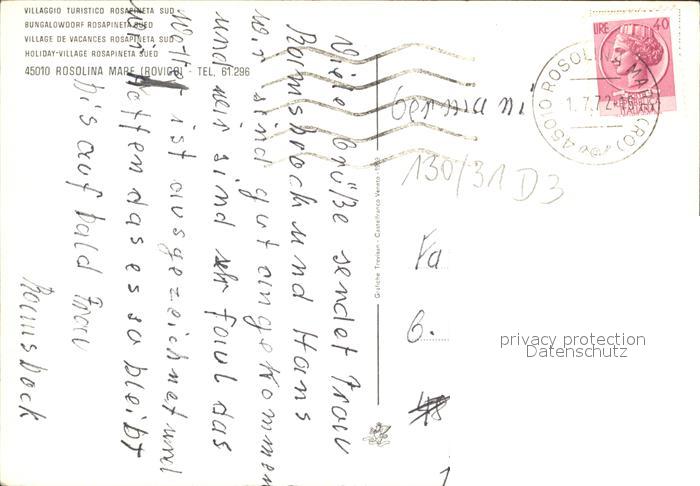 VILLAGGIO TURISTICO ROSAPINETA SUD
BUNGALOWDORF ROSAPINETA SUED
VILLAGE DE VACANCES ROSAPINETA SUD
HOLIDAY-VILLAGE ROSAPINETA SUED
45010 ROSOLINA MARE (ROVIGO) - TEL. 61.296
Viele Grüße sendet Frau
Ramsbrock und Hans
wir sind gut angekommen
und wir sind sehr faul das
Wetter ist ausgezeichnet und
wir hoffen das es so bleibt
bis auf bald Frau
Ramsbock
Grafiche Trevisan - Castelfranco Veneto
LIRE 40
45010 ROSOLINA MARE (RO)
1.7.72
Germani
130/31 D3
Fa
G.
48
1
privacy protection
Datenschutz